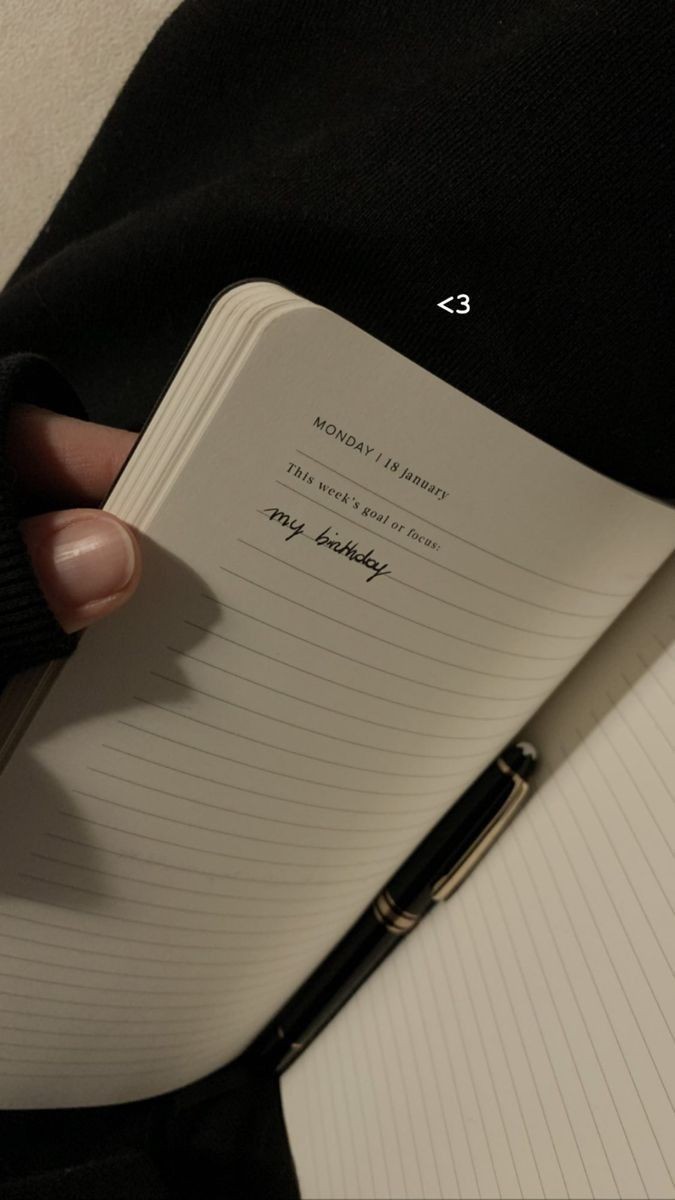 <3
MONDAY | 18 January
This week's goal or focus:
my birthday